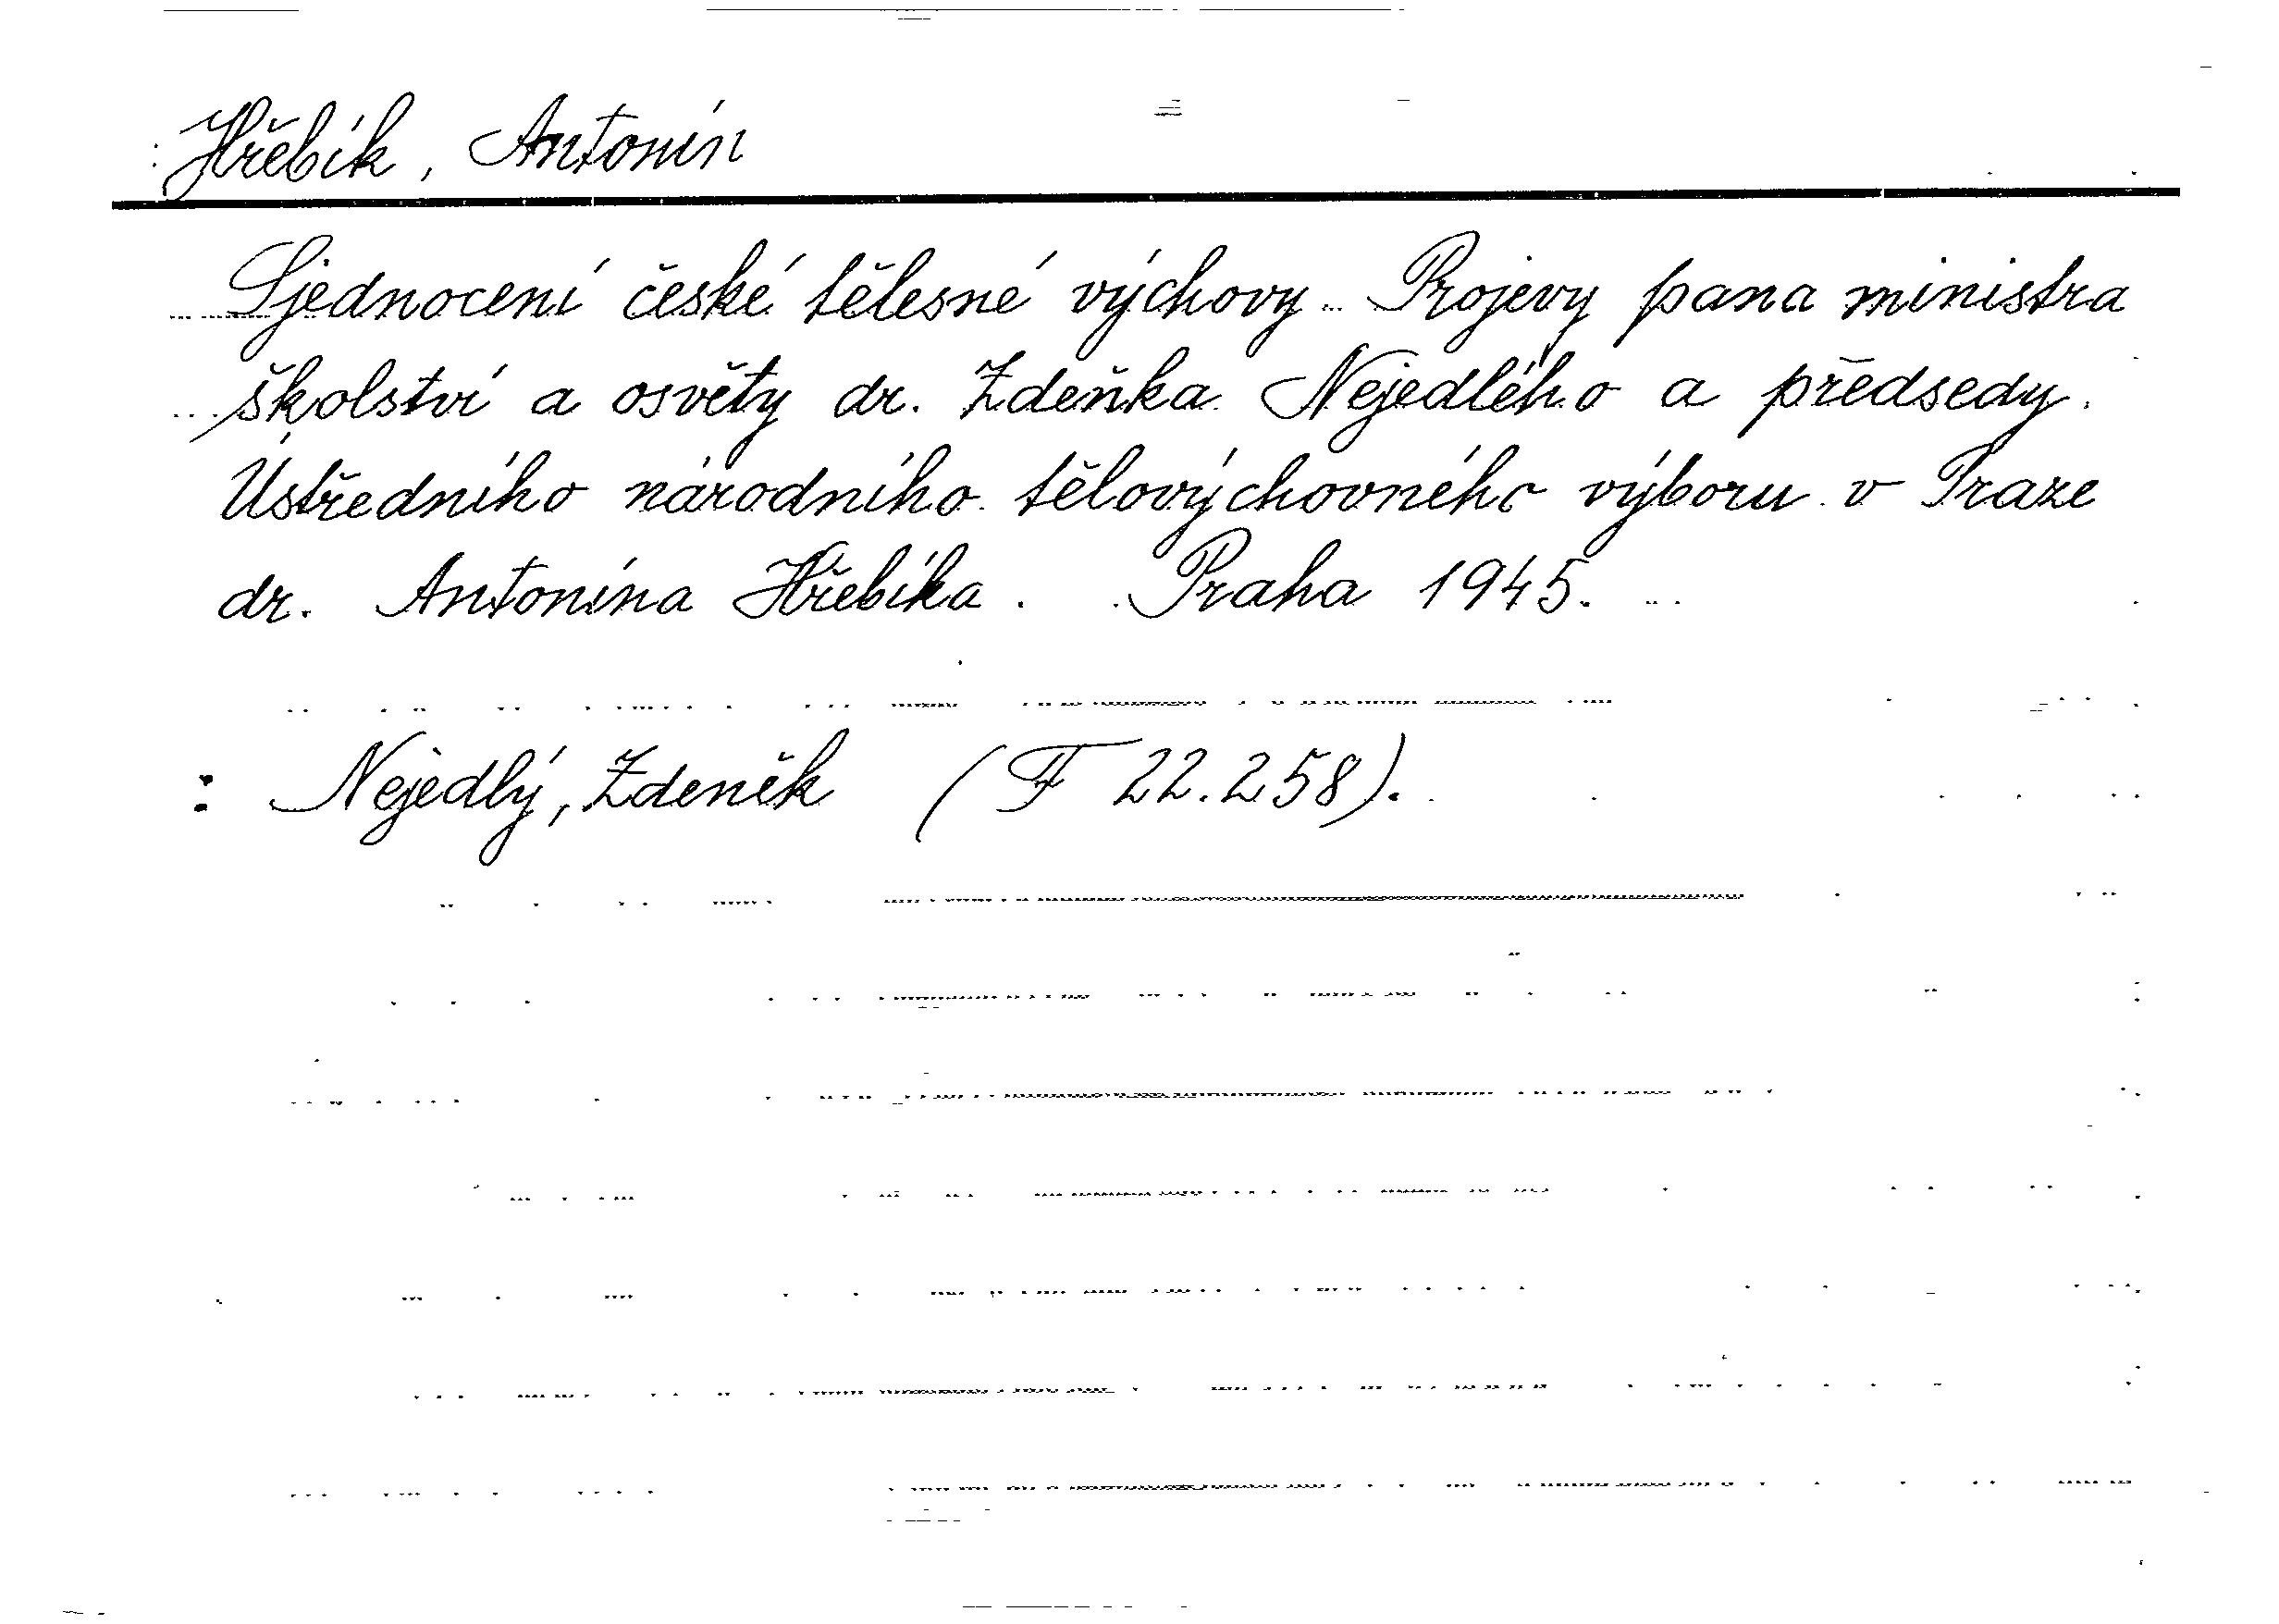 Hřebík, Antonín
Sjednocení české tělesné výchovy. Projevy pana ministra
školství a osvěty dr. Zdeňka Nejedlého a předsedy
Ústředního národního tělovýchovného výboru v Praze
dr. Antonína Hřebíka. Praha 1945.
: Nejedlý, Zdeněk (F 22.258).